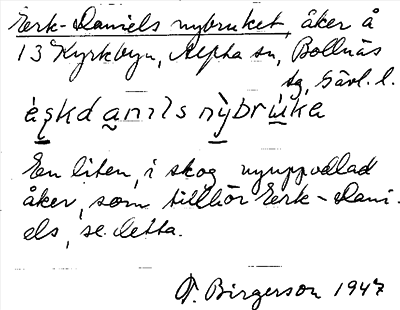 Eerk-Daniels nybruket, åker å
13 Kyrkbyn, Alfta sn, Bollnäs
sg, Gävl. l.
En liten, i skog nyuppodlad
åker, som tillhör Eerk-Dani-
els, se detta.
T. Birgerson 1947